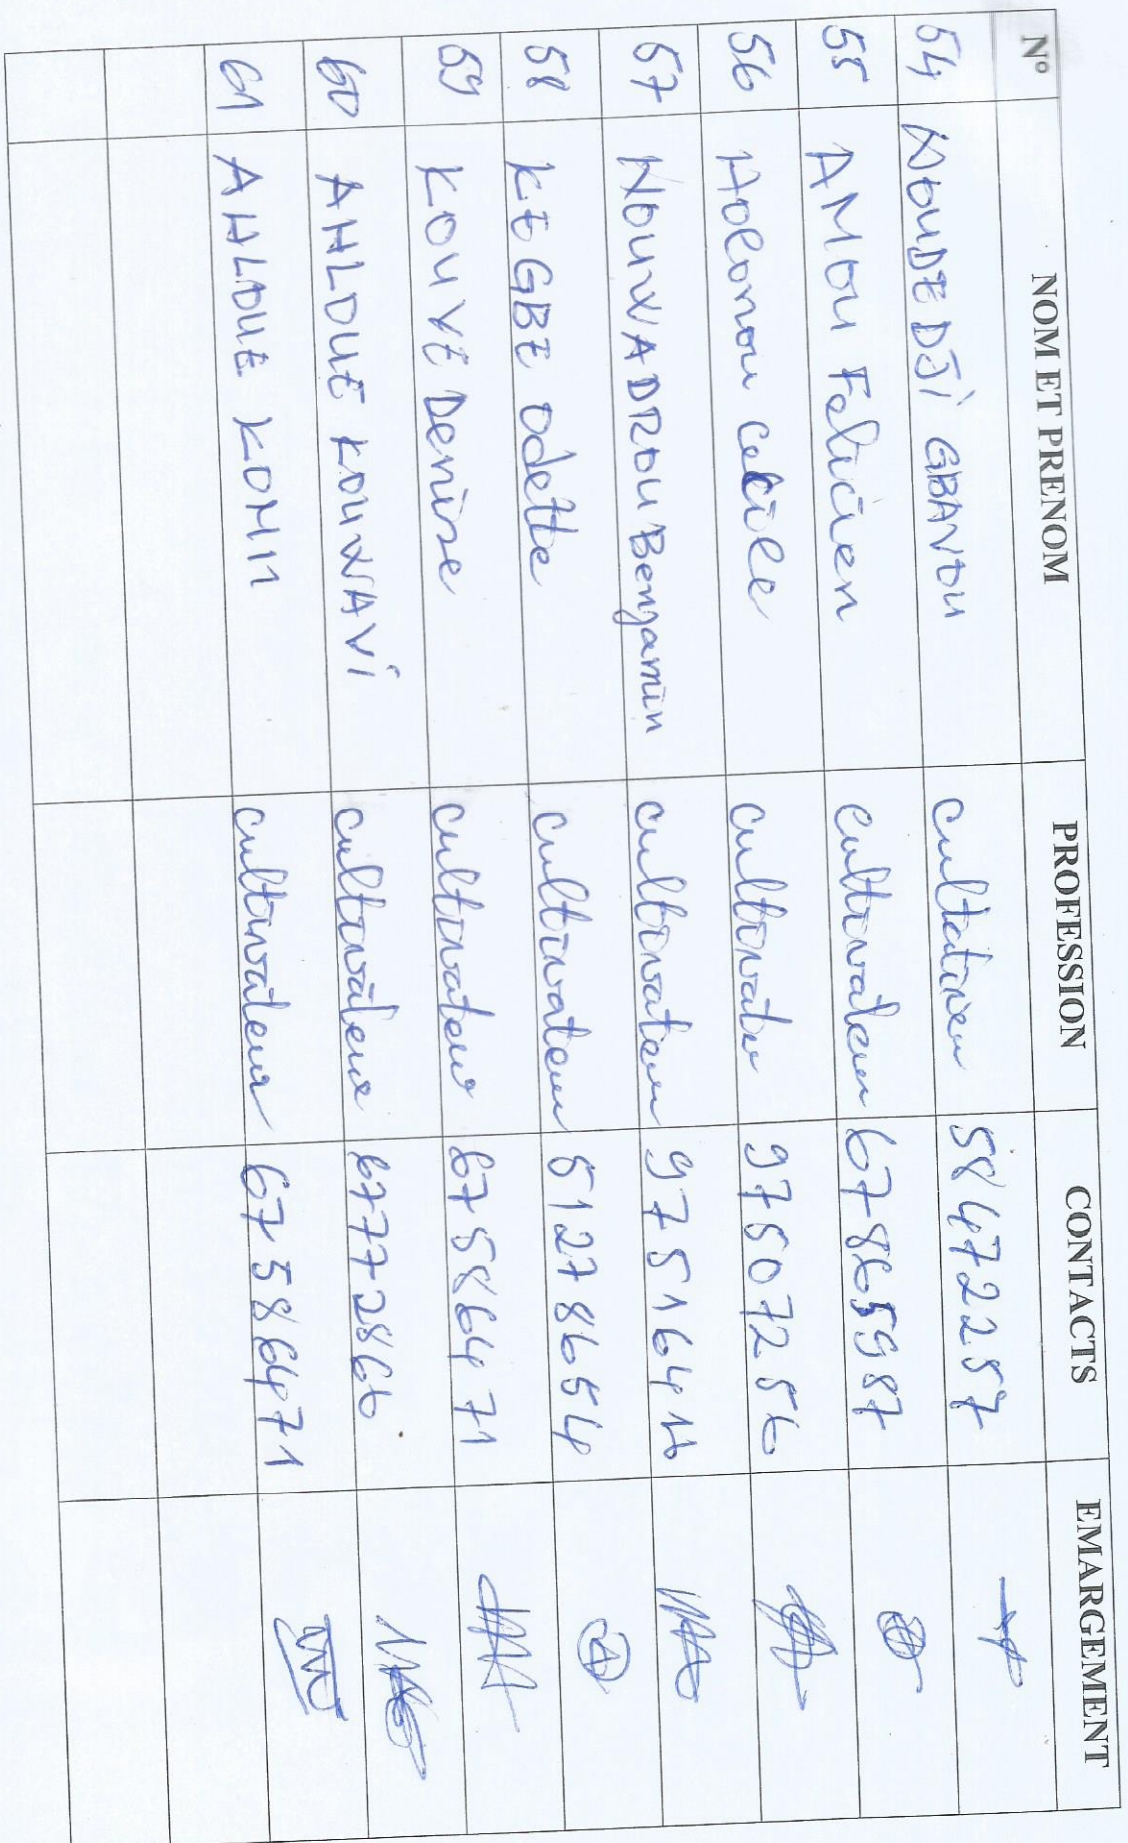 N° NOM ET PRENOM PROFESSION CONTACTS EMARGEMENT
54 NOUDEDJI GBANOU 58472257
55 AMOU Felicien cultivateur 67865987
56 Holonou cultivateur 97507256
57 NOUWADROU Benjamin cultivateur
58 KEGBE Odette cultivateur 51278654
59 KOUVE Denise cultivateur 67586471
60 AHLOUE KOUWAVI cultivateur 67772866
61 AHLOUE KOMI1 cultivateur 67586471